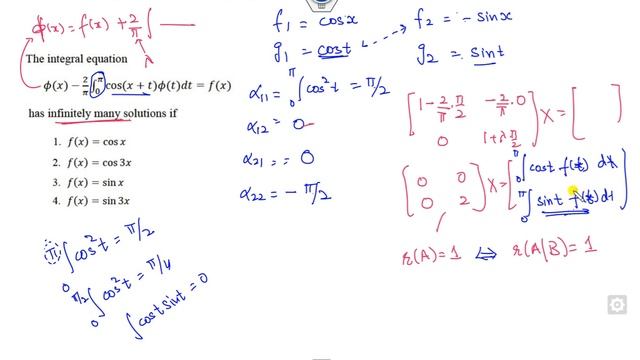 ϕ(x) = f(x) + 2/π ∫
λ
The integral equation
ϕ(x) − 2/π ∫₀^π cos(x + t)ϕ(t)dt = f(x)
has infinitely many solutions if
1. f(x) = cos x
2. f(x) = cos 3x
3. f(x) = sin x
4. f(x) = sin 3x
∫₀^π cos²t = π/2
∫₀^{π/2} cos²t = π/4
∫ cost sint = 0
f₁ = cosx f₂ = - sinx
g₁ = cost g₂ = sint
α₁₁ = ∫₀^π cos²t = π/2
α₁₂ = 0
α₂₁ = = 0
α₂₂ = - π/2
[1 - 2/π · π/2 -2/π · 0] X = [ ]
[0 1+λ π/2]
[0 0] X = [∫₀^π cost f(t) dt]
[0 2] [∫₀^π sint f(t) dt]
r(A) = 1 ⇔ r(A|B) = 1